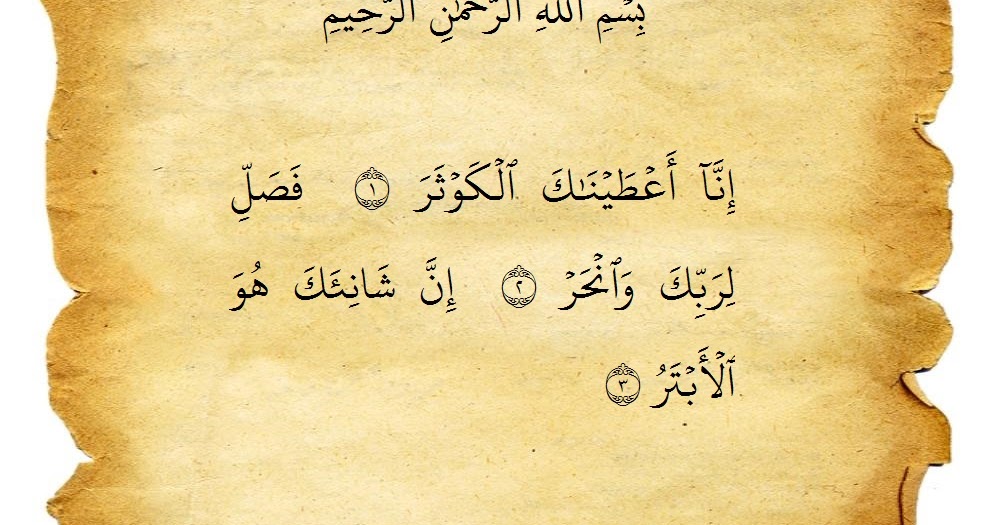 بِسْمِ اللَّهِ الرَّحْمَٰنِ الرَّحِيمِ
إِنَّآ أَعۡطَيۡنَٰكَ ٱلۡكَوۡثَرَ ١ فَصَلِّ
لِرَبِّكَ وَٱنۡحَرۡ ٢ إِنَّ شَانِئَكَ هُوَ
ٱلۡأَبۡتَرُ ٣